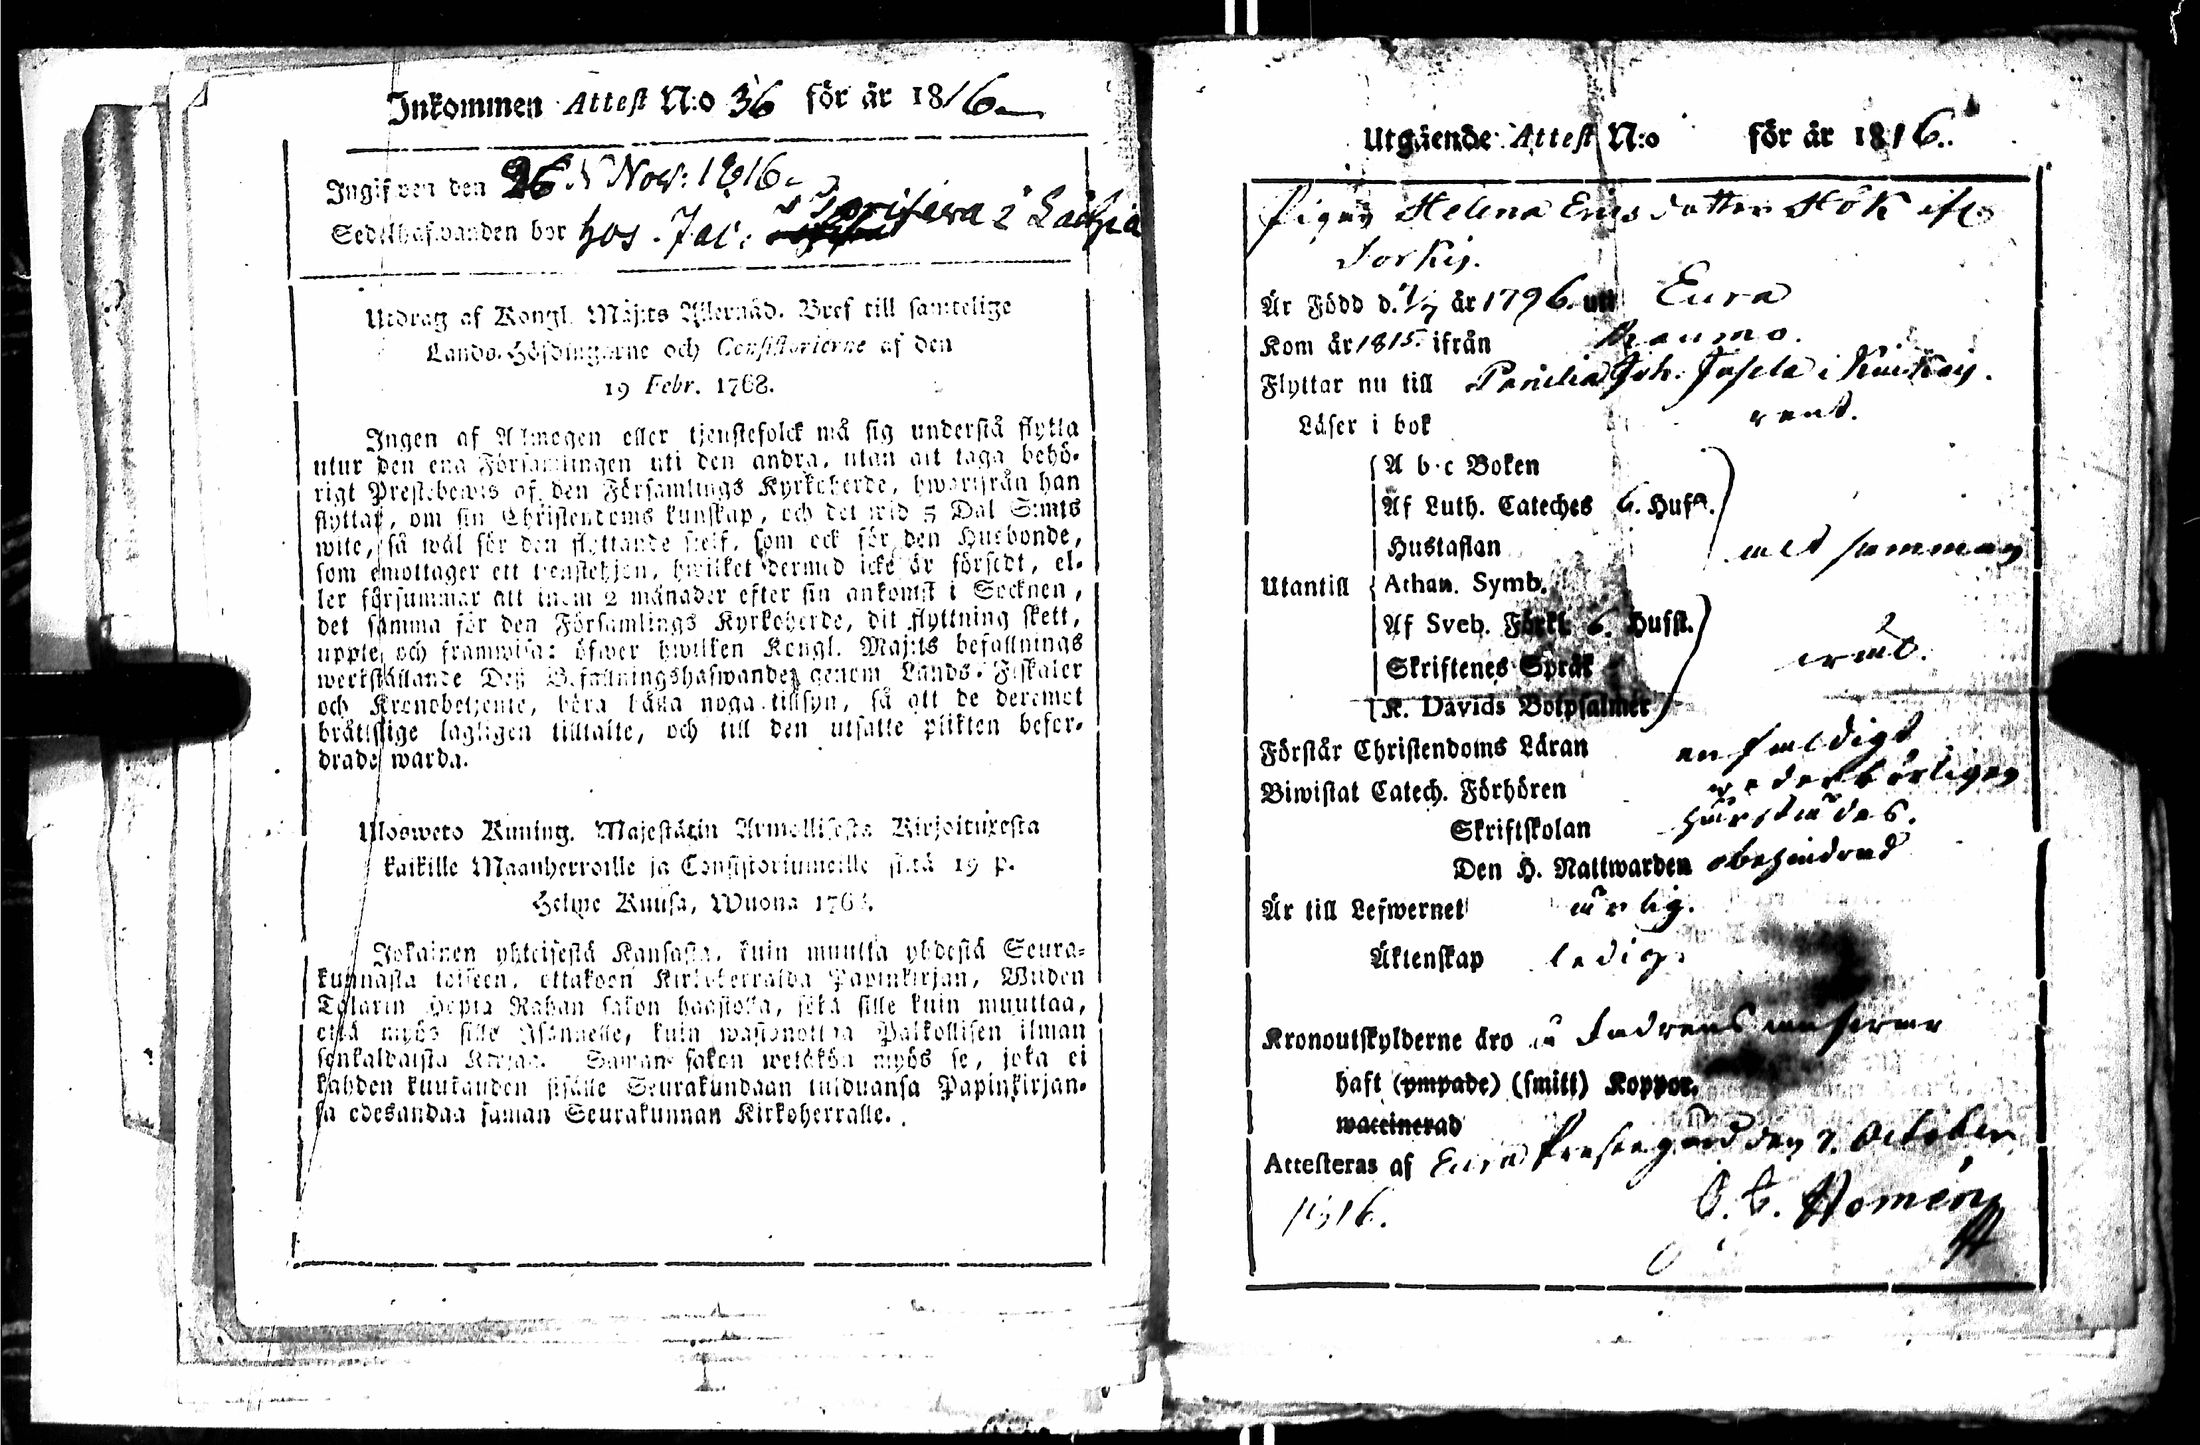 Inkommen Attest N:o 36 för år 1816
Ingifven den 26 Nov: 1816.
Sedelhafwanden bor hos Jac:
Utdrag af Kongl. Maj:ts Allernåd. Bref till samtelige
Lands-Höfdingarne och Consistorierne af den
19 Febr. 1768.
Ingen af Allmogen eller tjenstefolck må sig understå flytta
utur den ena Församlingen uti den andra, utan att taga behö-
rigt Prestebewis af den Församlings Kyrkoherde, hwarifrån han
flyttar, om sin Christendoms kunskap, och det wid 5 Dal S:mts
wite, så wäl för den flyttande sielf, som ock för den Husbonde,
som emottager ett tienstehjon, hwilket dermed icke är försedt, el-
ler försummar att inom 2 månader efter sin ankomst i Socknen,
det samma för den Församlings Kyrkoherde, dit flyttning skett,
uppte och framwisa: öfwer hwilken Kongl. Maj:ts befallnings
werkställande Deß Befallningshafwande genom Lands-Fiskaler
och Kronobetjente, böra hålla noga tillsyn, så att de deremot
bråtislige lagligen tilltalte, och till den utsatte plikten befor-
drade warda.
Ulosweto Kuning. Majestätin Armollisesta Kirjoituxesta
kaikille Maanherroille ja Consistoriumeille siitä 19 p.
Helme Kuusa, Wuona 1768.
Jokainen yhteisestä Kansasta, kuin muutta yhdestä Seura-
kunnasta toiseen, ottakoon Kirkoherralda Papinkirjan, Wiiden
Talarin Hopia Rahan sakon haastolla, sekä sille kuin muuttaa,
että myös sille Isännelle, kuin wastanottaa Palkollisen ilman
senkaldaista Kirjaa. Saman sakon wetäkön myös se, joka ei
kahden kuukauden sisälle Seurakundaan tulduansa Papinkirjan-
sa edesandaa saman Seurakunnan Kirkoherralle.
Utgående Attest N:o för år 1816.
Pigan Helena Ericsdotter Hök ifr.
Är Född d. 1/7 år 1796. uti Eura
Kom år 1815. ifrån Raumo.
Flyttar nu till Joh.
Läser i bok rent.
A b c Boken
Af Luth. Cateches 6. Hufst.
Hustaflan alt samman
Utantill Athan. Symb.
Af Sveb. Förkl. 6. Hufst.
Skriftenes Språk
K. Davids Botpsalmer
Förstår Christendoms Läran enfaldigt
Biwistat Catech. Förhören wederbörligen
Skriftskolan
Den H. Nattwarden obehindrad
Är till Lefwernet ärlig.
Äktenskap ledig.
Kronoutskylderne äro
haft (ympade) (smitt) Koppor.
waccinerad
Attesteras af Eura Prestegård den 7. October
1816.